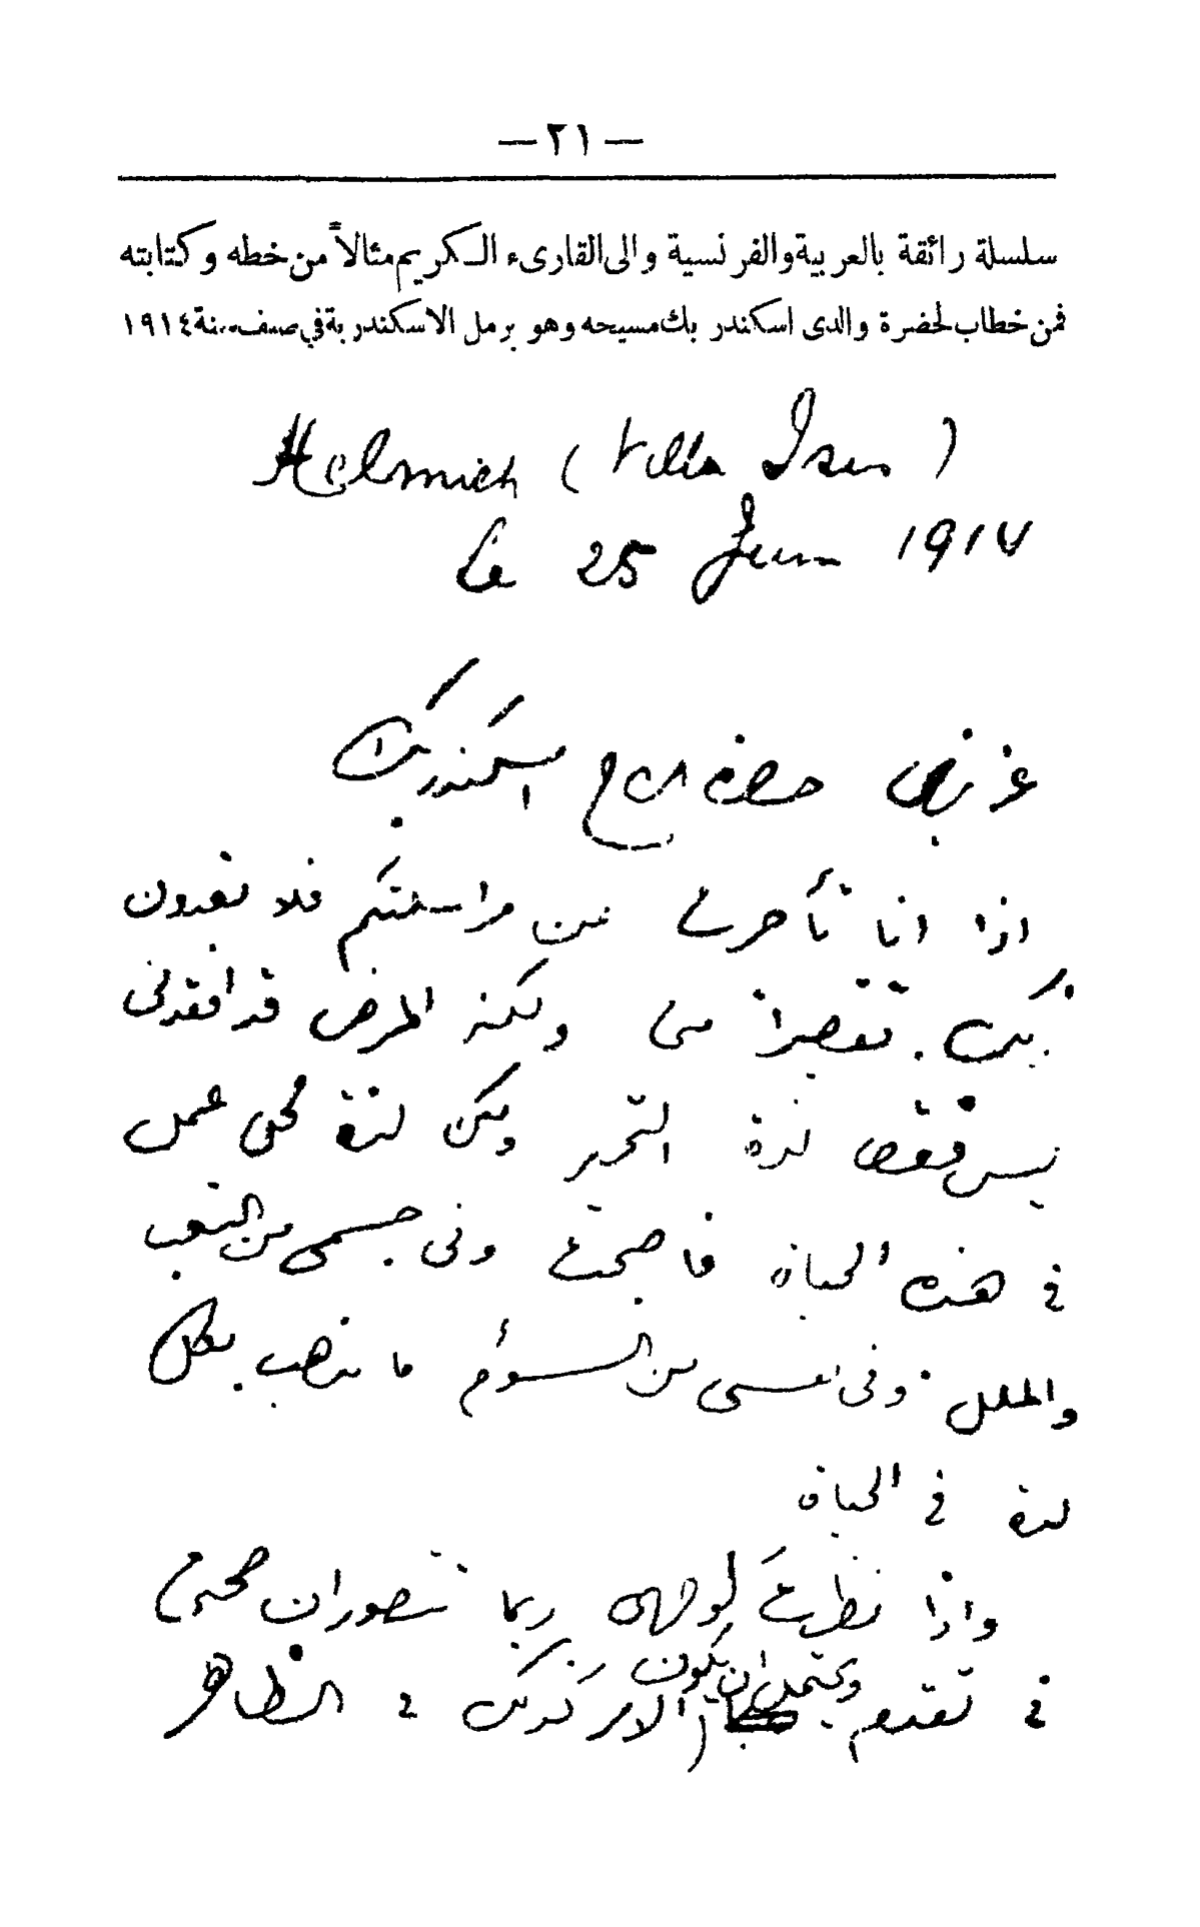 — ٢١ —
سلسلة رائقة بالعربية والفرنسية والى القارىء الكريم مثالاً من خطه وكتابته
فمن خطاب لحضرة والدى اسكندر بك مسيحه وهو برمل الاسكندرية في صيف سنة ١٩١٤
Helmieh ( Villa Isis )
Le 25 Juin 1914
عزيزى حضرة اسكندر بك
اذا انا تأخرت عن مراسلتكم فلا تعدون
ذلك تقصيرا منى ولكنه المرض قد افقدنى
ليس فقط لذة التحرير ولكن لذة كل عمل
فى هذه الحياة فأصبحت وفى جسمى من التعب
والملل وفى نفسى من السؤام ما يذهب بكل
لذة فى الحياة
واذا نظرت لوجهى ربما تتصور ان صحتى
فى تقدم ويحتمل ان يكون الامر كذلك فى الظاهر